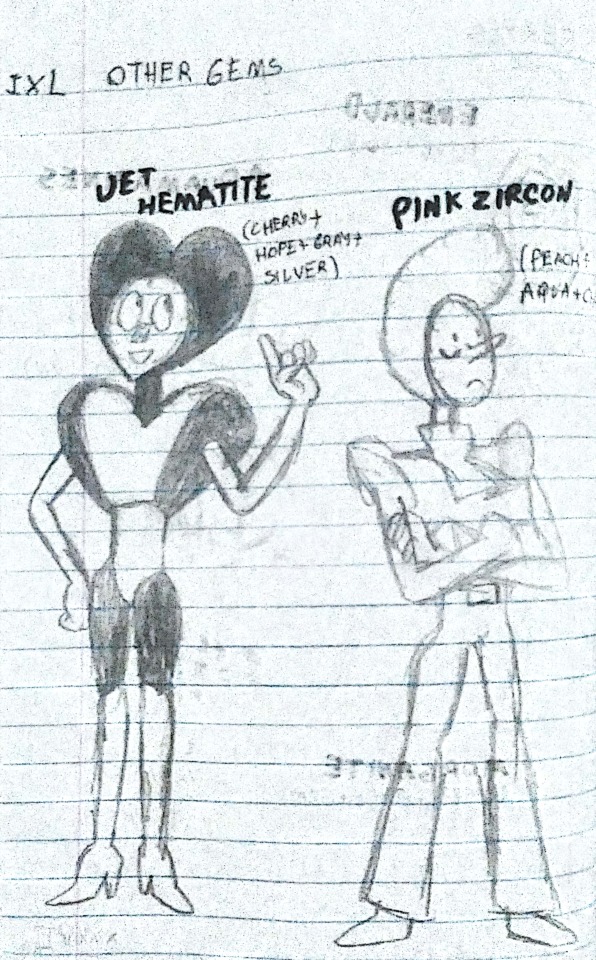 IXL OTHER GEMS
JET
HEMATITE
(CHERRY +
HOPE + GRAY +
SILVER)
PINK ZIRCON
(PEACH +
AQUA +